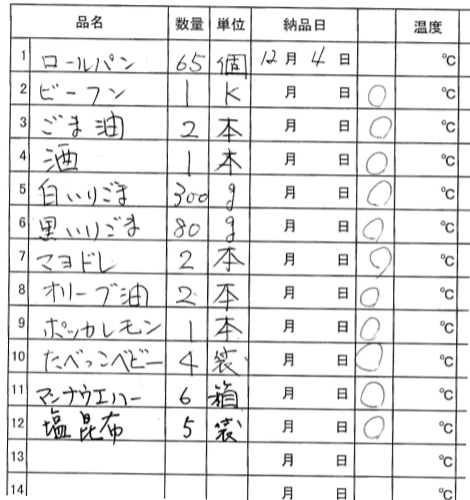 品名 数量 単位 納品日 温度
1 ロールパン 65 個 12月 4日 ℃
2 ビーフン 1 K 月 日 ○ ℃
3 ごま油 2 本 月 日 ○ ℃
4 酒 1 本 月 日 ○ ℃
5 白いりごま 300 g 月 日 ○ ℃
6 黒いりごま 80 g 月 日 ○ ℃
7 マヨドレ 2 本 月 日 ○ ℃
8 オリーブ油 2 本 月 日 ○ ℃
9 ポッカレモン 1 本 月 日 ○ ℃
10 たべっこベビー 4 袋 月 日 ○ ℃
11 マンナウエハー 6 箱 月 日 ○ ℃
12 塩昆布 5 袋 月 日 ○ ℃
13 月 日 ℃
14 月 日 ℃